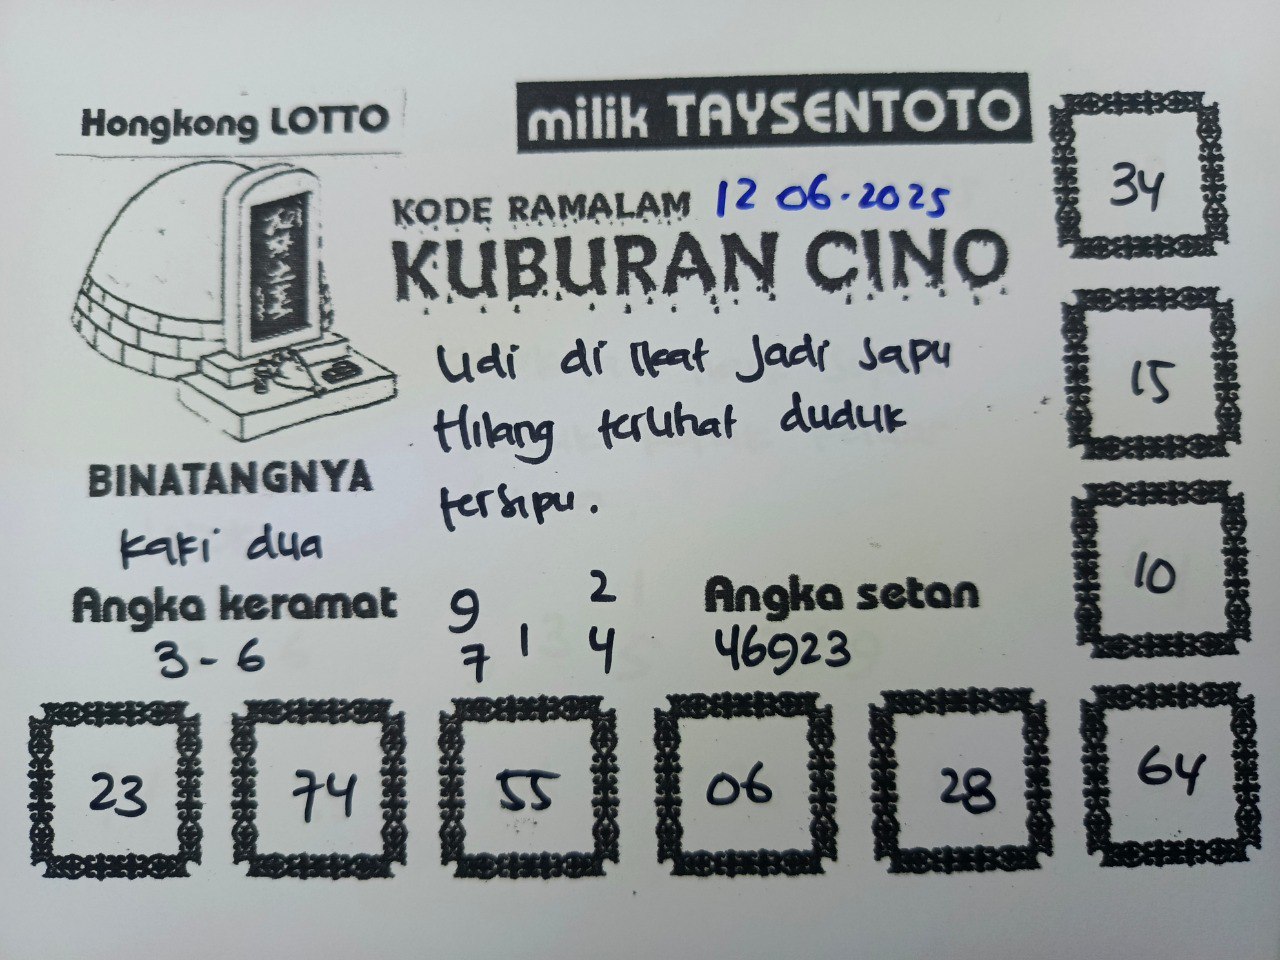 Hongkong LOTTO
milik TAYSENTOTO
KODE RAMALAM 12 06.2025
KUBURAN CINO
Udi di Ikat Jadi sapu
Hilang terlihat duduk
tersipu.
BINATANGNYA
kaki dua
Angka keramat
3 - 6
9 2
7 1 4
Angka setan
46923
34
15
10
23 74 55 06 28 64